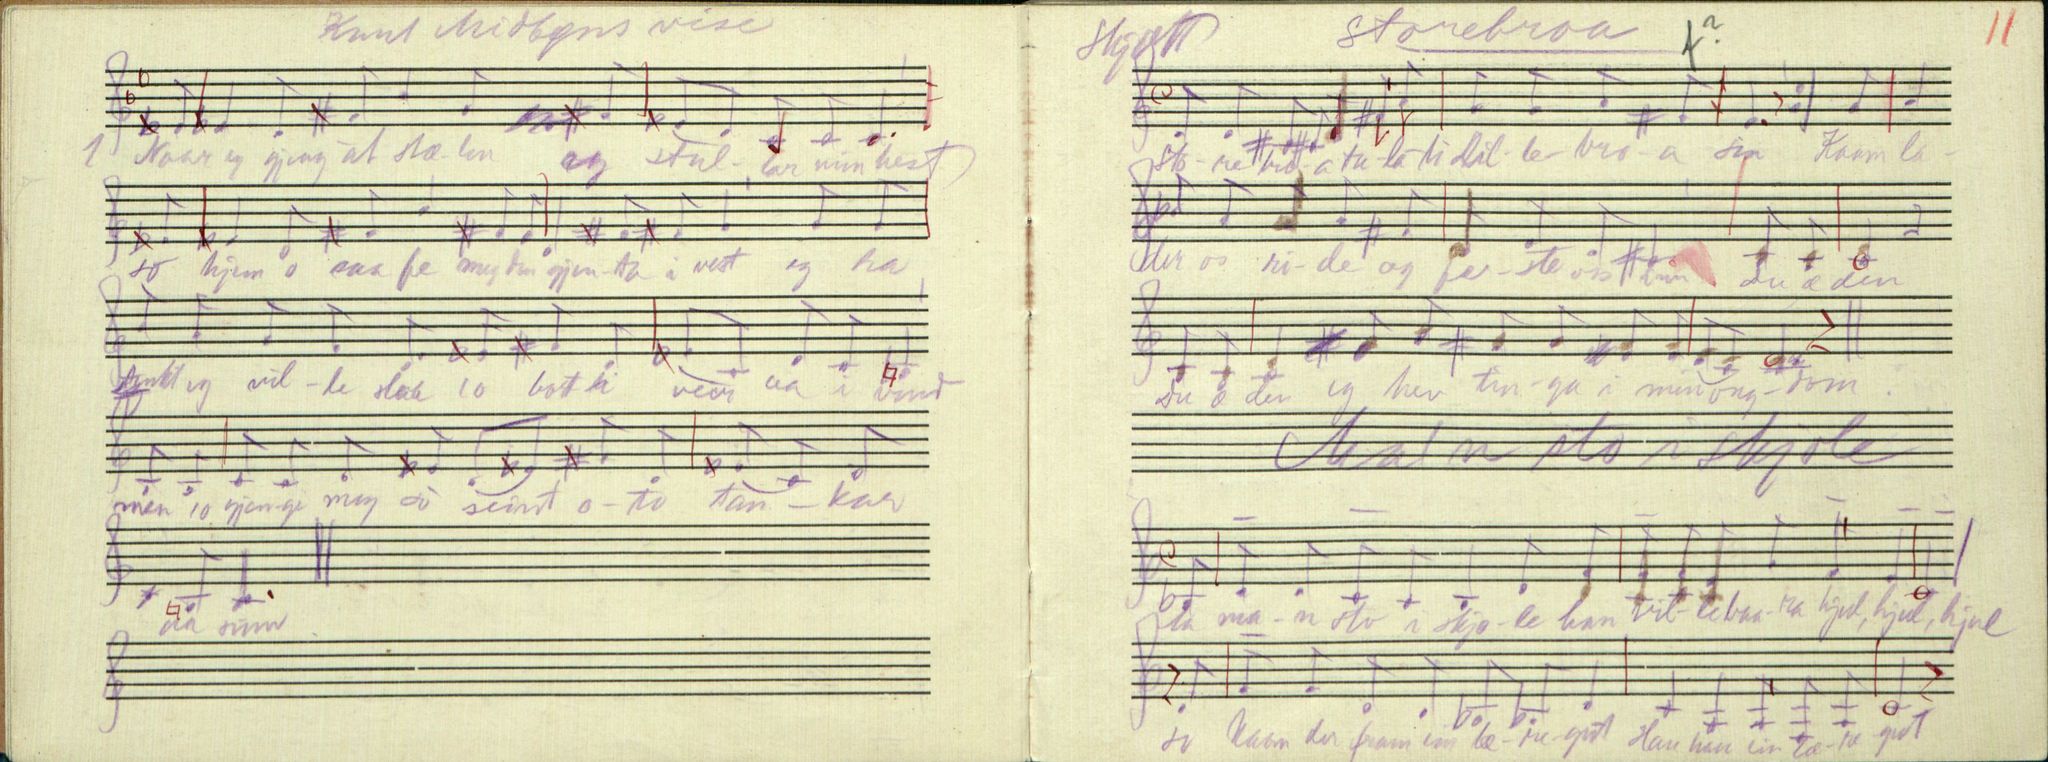 Knut Midbøens vise
1 Naar eg gjeng åt stæ-len og stal-lar min hest
so kjem o saa fe meg den gjen-ta i vest eg ha
tenkt eg vil-le slaa io bort i veer aa i vind
men io gjen-gi meg so seint o-to tan-kar
aa sinn
Storebroa
11
Sto-re bro-a ta-la ti lil-le bro-a sin Kaam la-
der os ri-de og fe-ste vis din Du æ den
Du æ den eg hev tin-ga i min ong-dom.
Ma'n sto i skjole
La ma-n sto i skjo-le han vil-le baa-ra hjul, hjul, hjul
so kaam der fram ein læ-re-gut Han han ein læ-re gut